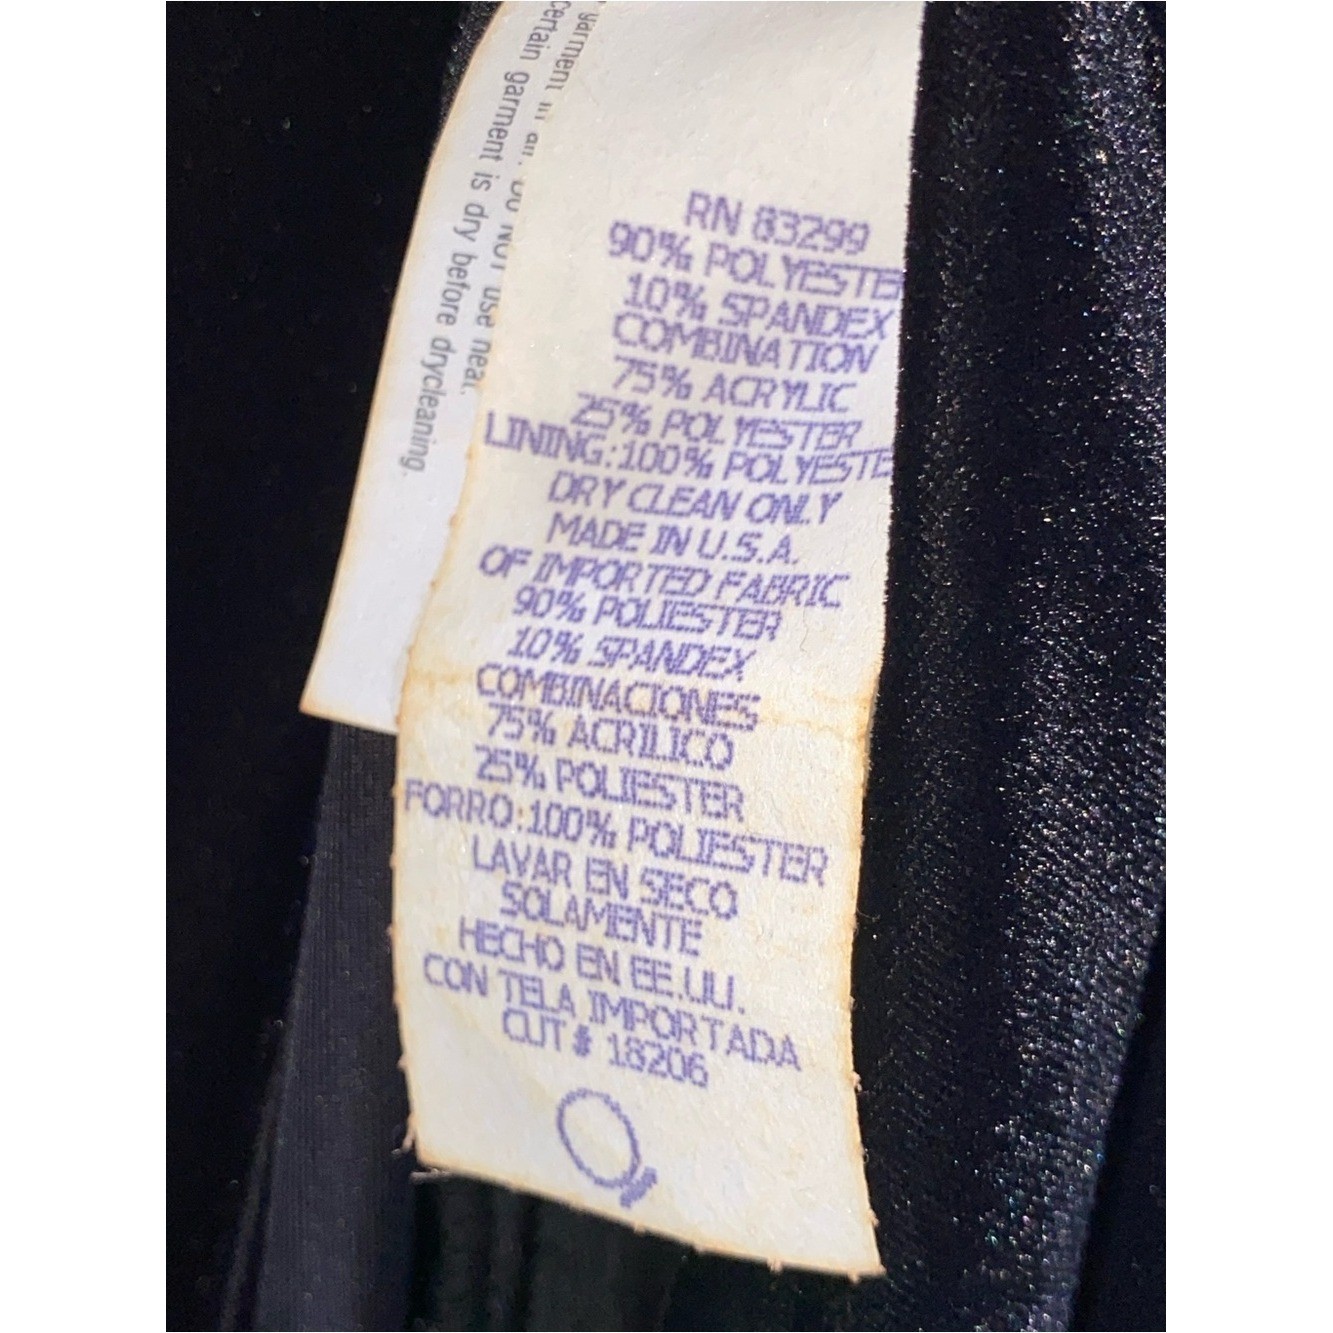 garment in an.
certain garment is dry before drycleaning.
DO NOT use near.
RN 83299
90% POLYESTER
10% SPANDEX
COMBINATION
75% ACRYLIC
25% POLYESTER
LINING:100% POLYESTE
DRY CLEAN ONLY
MADE IN U.S.A.
OF IMPORTED FABRIC
90% POLIESTER
10% SPANDEX
COMBINACIONES
75% ACRILICO
25% POLIESTER
FORRO:100% POLIESTER
LAVAR EN SECO
SOLAMENTE
HECHO EN EE.UU.
CON TELA IMPORTADA
CUT # 18206